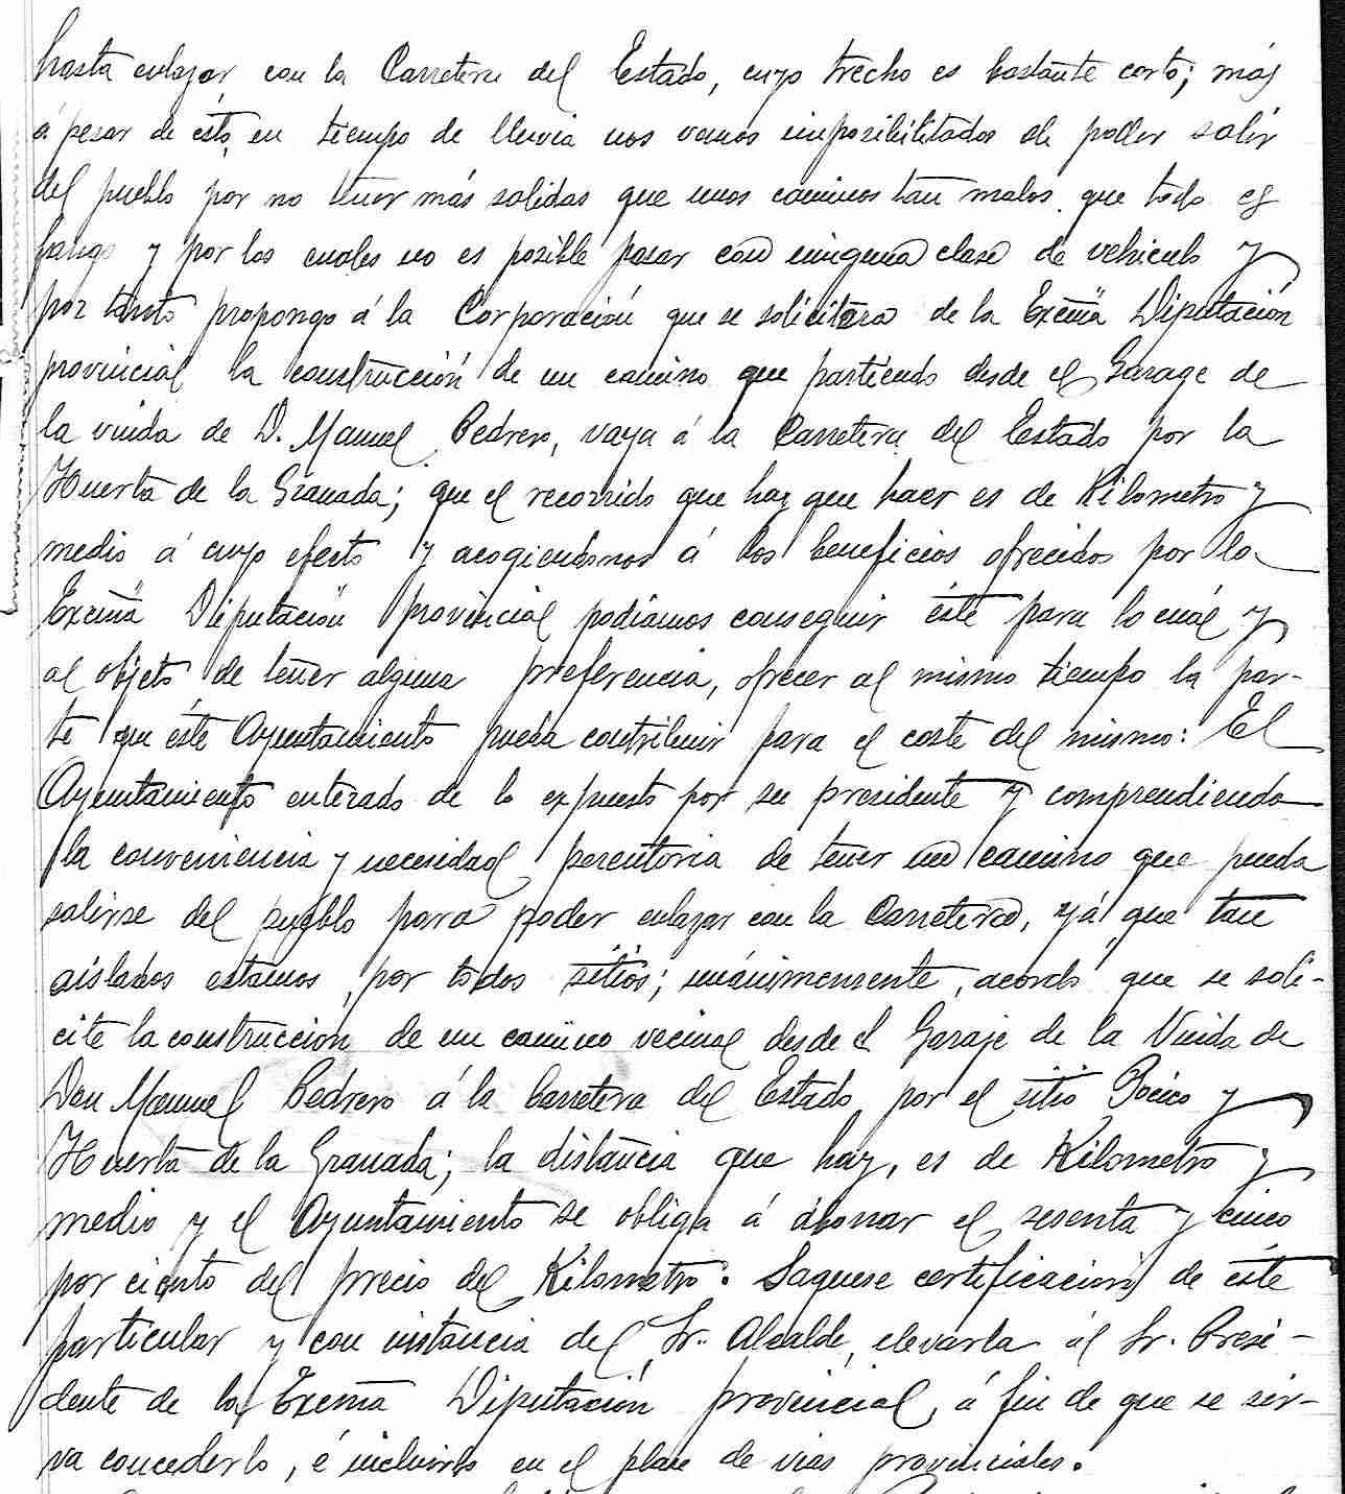 hasta enlazar con la Carretera del Estado, cuyo trecho es bastante corto; más
á pesar de ésto, en tiempo de lluvia nos vemos imposibilitados de poder salir
del pueblo por no tener más salidas que unos caminos tan malos que todo es
fango y por los cuales no es posible pasar con ninguna clase de vehiculo y
por tanto propongo á la Corporación que se solicitara de la Excmã Diputación
provincial la construcción de un camino que partiendo desde el Garage de
la viuda de D. Manuel Pedrero, vaya á la Carretera del Estado por la
Huerta de la Granada; que el recorrido que hay que hacer es de Kilometro y
medio á cuyo efecto y acogiendonos á los beneficios ofrecidos por la
Excmã Diputación provincial podiamos conseguir éste para lo cuál y
al objeto de tener alguna preferencia, ofrecer al mismo tiempo la par-
te que éste Ayuntamiento pueda contribuir para el coste del mismo: El
Ayuntamiento enterado de lo expuesto por su presidente y comprendiendo
la conveniencia y necesidad perentoria de tener un camino que pueda
salirse del pueblo para poder enlazar con la Carretera, yá que tan
aislados estamos, por todos sitios; unánimemente, acordó que se soli-
cite la construcción de un camino vecinal desde el Garaje de la Viuda de
Don Manuel Pedrero á la Carretera del Estado por el sitio Pocico y
Huerta de la Granada; la distancia que hay, es de Kilometro y
medio y el Ayuntamiento se obliga á abonar el sesenta y cinco
por ciento del precio del Kilometro. Saquese certificación de éste
particular y con instancia del Sr. Alcalde, elevarla ál Sr. Presi-
dente de la Excma Diputación provincial, á fin de que se sir-
va concederlo, é incluirlo en el plan de vias provinciales.